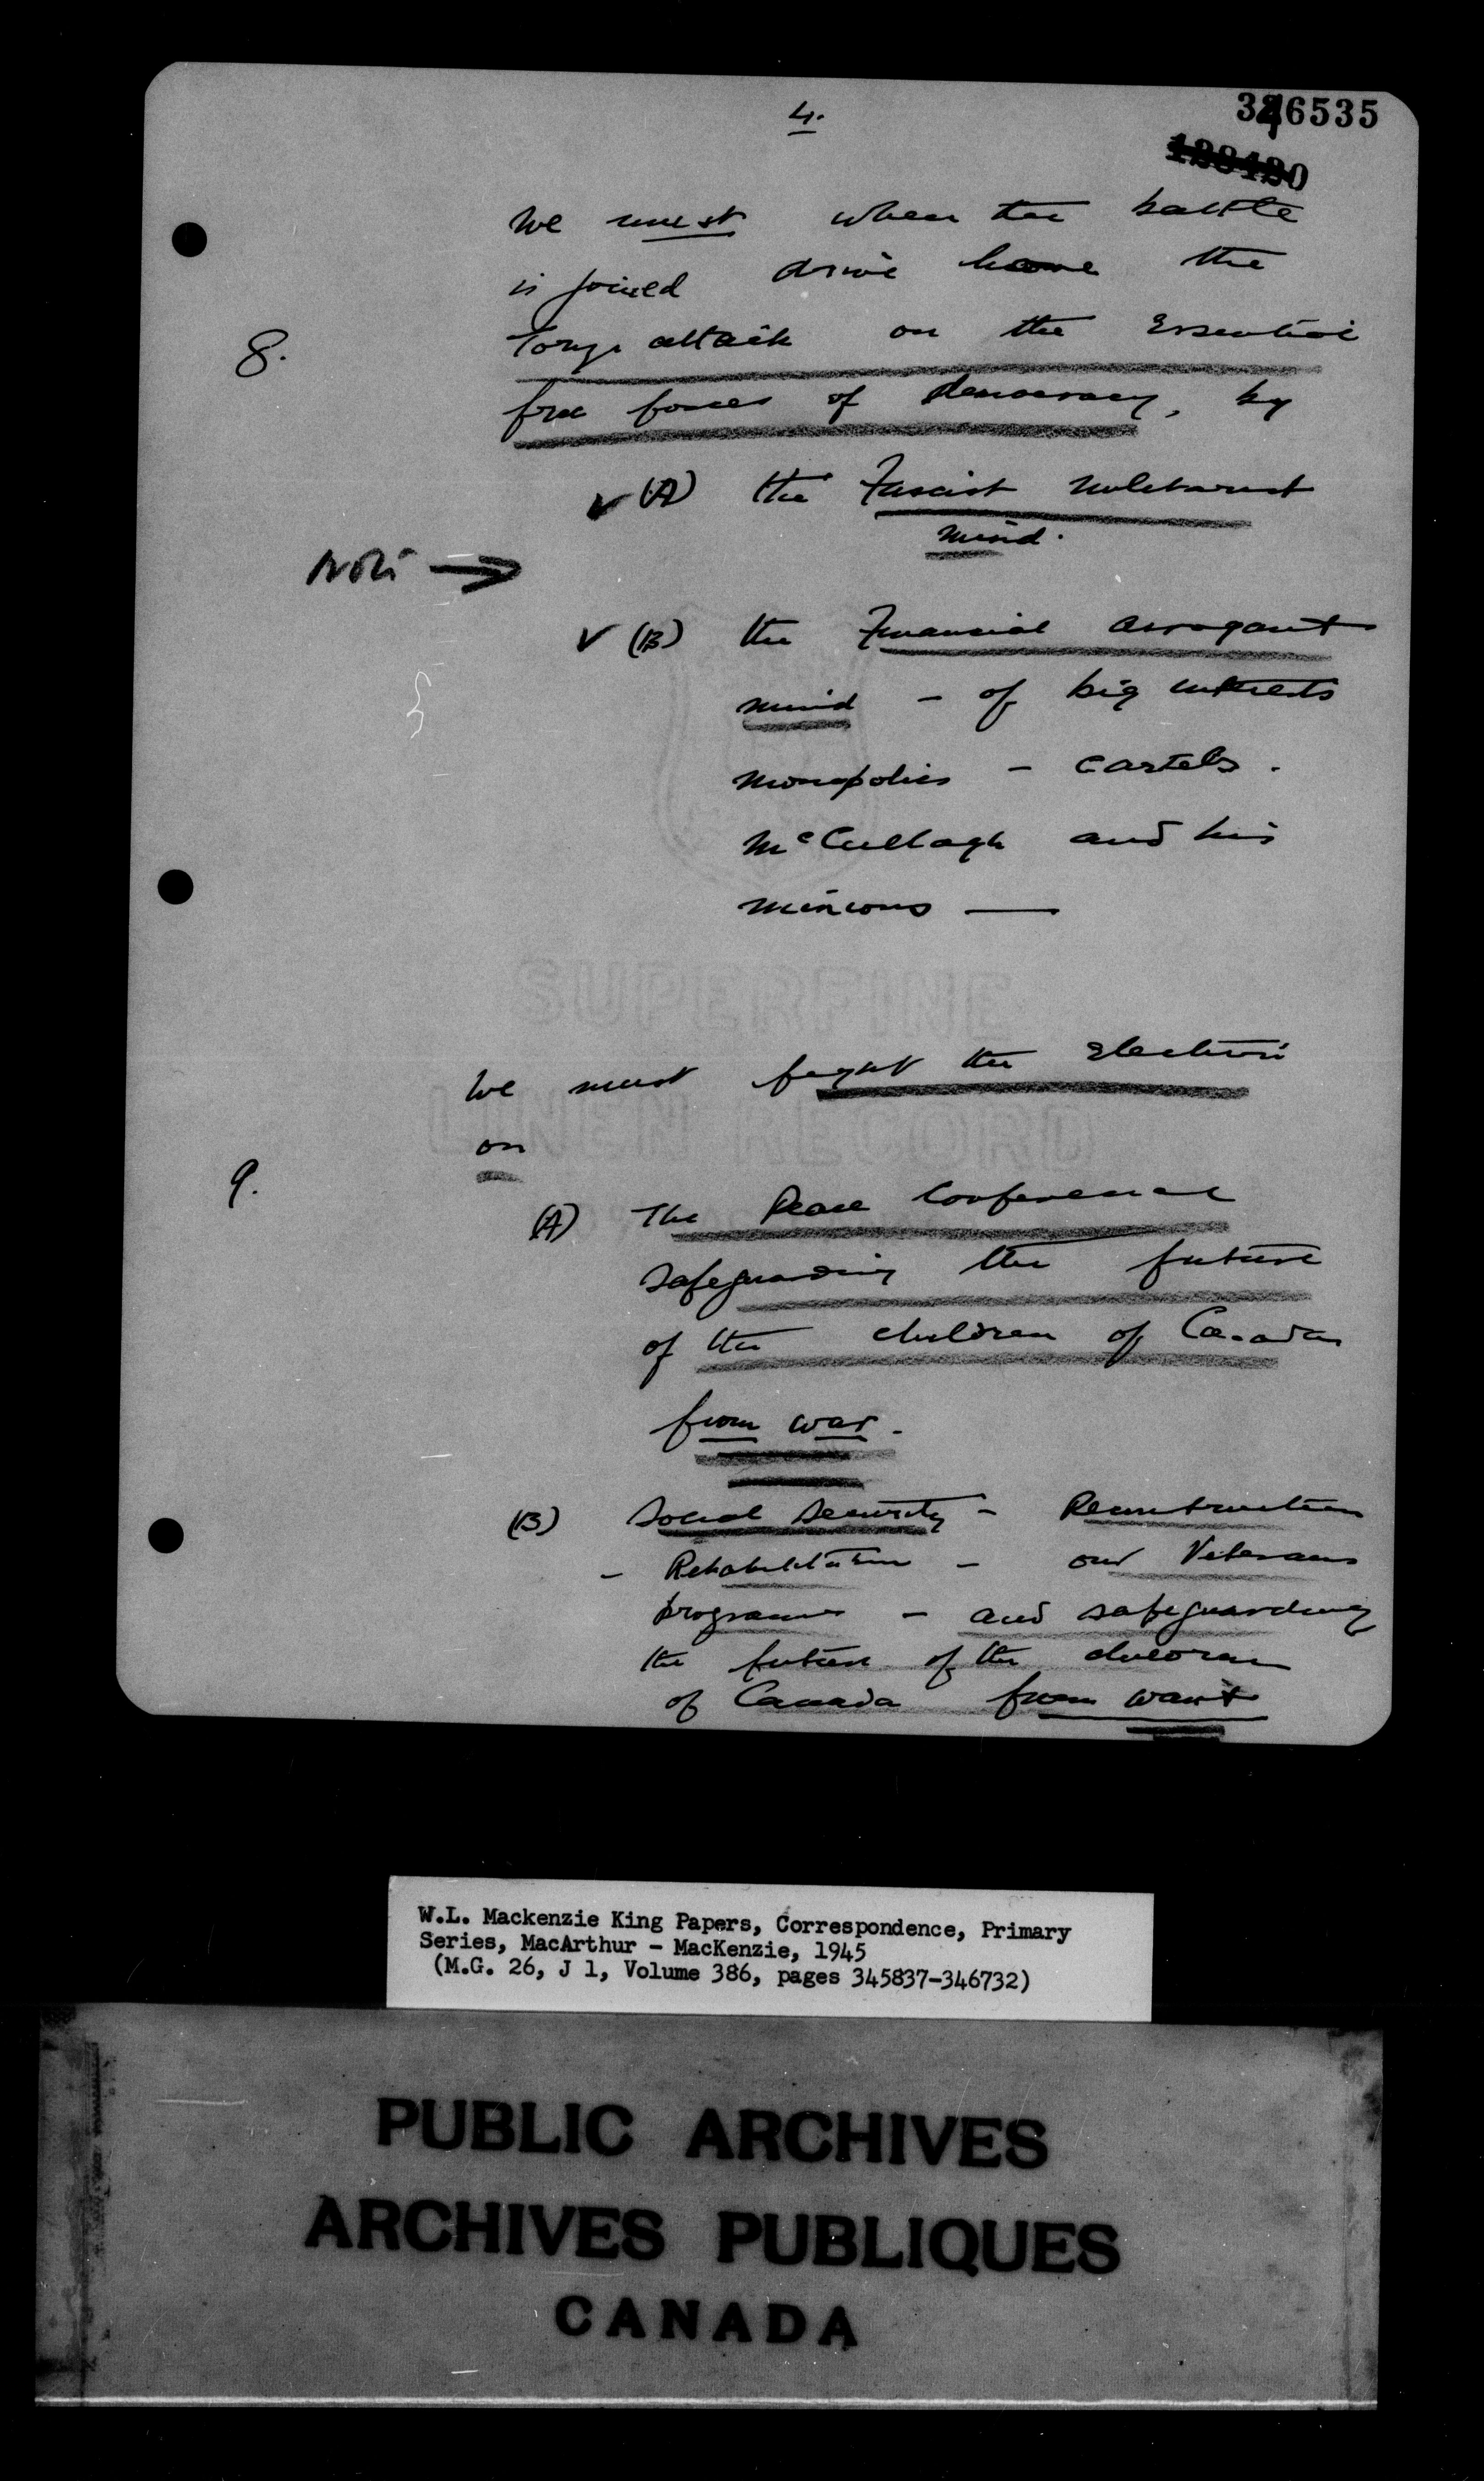 4.
346535
We must when the battle
is joined drive home the
8.
Tory attack on the Essential
free forces of democracy, by
✓ (A) the Fascist militarist
mind.
Note →
✓ (B) the Financial arrogant
mind - of big interests
monopolies - cartels.
McCullagh and his
minions —
SUPERFINE
LINEN RECORD
We must fight the Election
on
9.
(A) The Peace Conference
safeguarding the future
of the children of Canada
from war.
(B) Social Security - Reconstruction
- Rehabilitation - our Veterans
programme - and safeguarding
the future of the children
of Canada from want
W.L. Mackenzie King Papers, Correspondence, Primary
Series, MacArthur - MacKenzie, 1945
(M.G. 26, J 1, Volume 386, pages 345837-346732)
PUBLIC ARCHIVES
ARCHIVES PUBLIQUES
CANADA